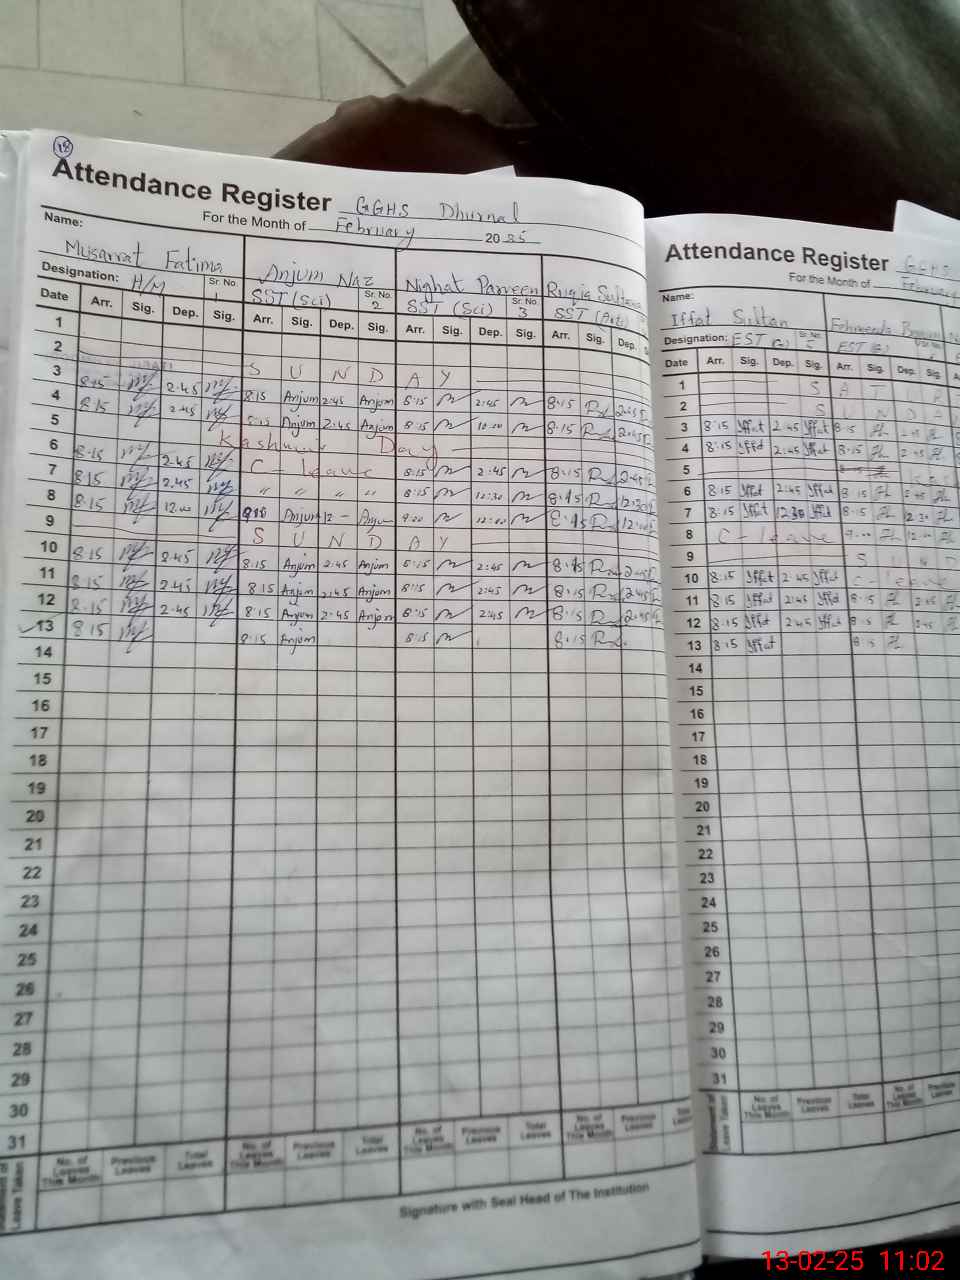 18
Attendance Register GGHS Dhurnal
For the Month of February 2025
Name:
Musarrat Fatima Anjum Naz Nighat Parveen Ruqia Sultana
Designation: H/M Sr. No. 1 SST (Sci) Sr. No. 2 SST (Sci) Sr. No. 3 SST (Arts)
Date Arr. Sig. Dep. Sig. Arr. Sig. Dep. Sig. Arr. Sig. Dep. Sig. Arr. Sig. Dep.
1
2 S U N D A Y
3 8.15 2.45 8:15 Anjum 2:45 Anjum 8:15 2:45 8:15 2:45
4 8.15 2.45 8:15 Anjum 2:45 Anjum 8:15 8:15 2:45
5 Kashmir Day
6 8.15 2.45 C - Leave 8:15 2:45 8:15 2:45
7 8.15 2.45 " " " " 8:15 12:30 8:45 12:30
8 8.15 12.00 9:00 Anjum 12 - Anjum 9:00 12:00 8:45 12:00
9 S U N D A Y
10 8.15 2.45 8:15 Anjum 2:45 Anjum 8:15 2:45 8:45 2:45
11 8.15 2.45 8:15 Anjum 2:45 Anjum 8:15 2:45 8:15 2:45
12 8.15 2.45 8:15 Anjum 2:45 Anjum 8:15 2:45 8:15 2:45
13 8.15 8:15 Anjum 8:15 8:15
14
15
16
17
18
19
20
21
22
23
24
25
26
27
28
29
30
31
No. of Leaves This Month Previous Leaves Total Leaves No. of Leaves This Month Previous Leaves Total Leaves No. of Leaves This Month Previous Leaves Total Leaves No. of Leaves This Month Previous Leaves
Leave Taken
Signature with Seal Head of The Institution
Attendance Register GGHS
For the Month of February
Name:
Iffat Sultan
Designation: EST Sr. No. 5 EST
Date Arr. Sig. Dep. Sig. Arr. Sig. Dep. Sig.
1 S A T U R
2 S U N D A
3 8:15 Iffat 2:45 Iffat 8:15 2:45
4 8:15 Iffat 2:45 Iffat 8:15 2:45
5
6 8:15 Iffat 2:45 Iffat 8:15 2:45
7 8:15 Iffat 12:30 Iffat 8:15 12:30
8 C - leave 9:00 12:00
9 S U N D
10 8:15 Iffat 2:45 Iffat C - leave
11 8:15 Iffat 2:45 Iffat 8:15 2:45
12 8:15 Iffat 2:45 Iffat 8:15 2:45
13 8:15 Iffat 8:15
14
15
16
17
18
19
20
21
22
23
24
25
26
27
28
29
30
31
No. of Leaves This Month Previous Leaves Total Leaves No. of Leaves This Month Previous Leaves
Leave Taken
13-02-25 11:02